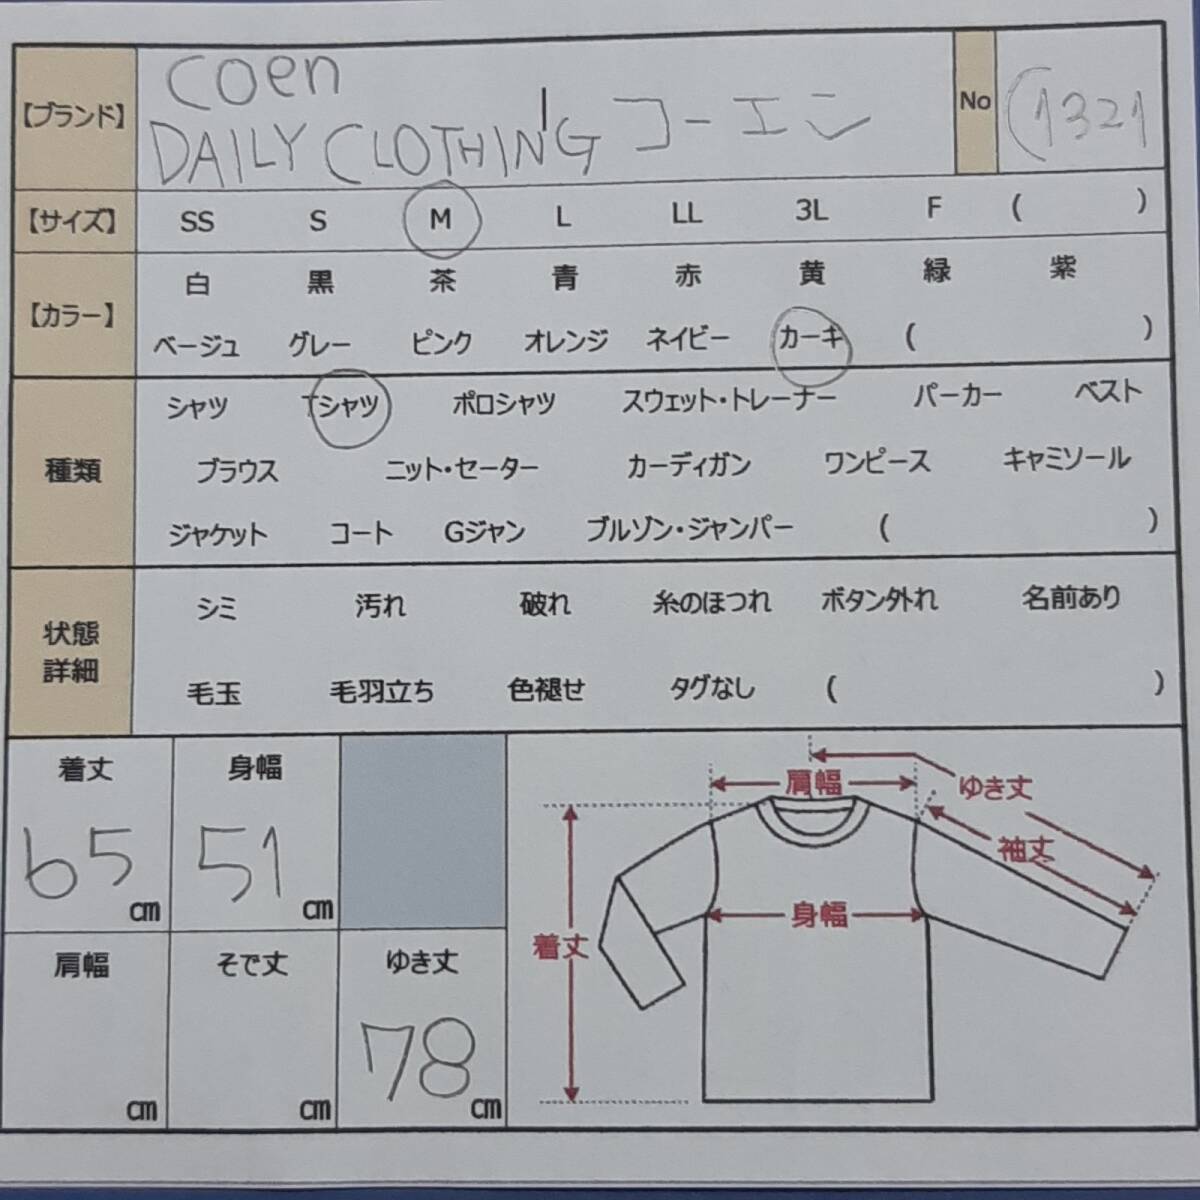 【ブランド】 coen No (1321
DAILY CLOTHING コーエン
【サイズ】 SS S M L LL 3L F ( )
【カラー】 白 黒 茶 青 赤 黄 緑 紫
ベージュ グレー ピンク オレンジ ネイビー カーキ ( )
種類 シャツ Tシャツ ポロシャツ スウェット・トレーナー パーカー ベスト
ブラウス ニット・セーター カーディガン ワンピース キャミソール
ジャケット コート Gジャン ブルゾン・ジャンパー ( )
状態
詳細
シミ 汚れ 破れ 糸のほつれ ボタン外れ 名前あり
毛玉 毛羽立ち 色褪せ タグなし ( )
着丈 身幅
65 cm 51 cm
肩幅 そで丈 ゆき丈
cm cm 78 cm
肩幅
ゆき丈
袖丈
身幅
着丈